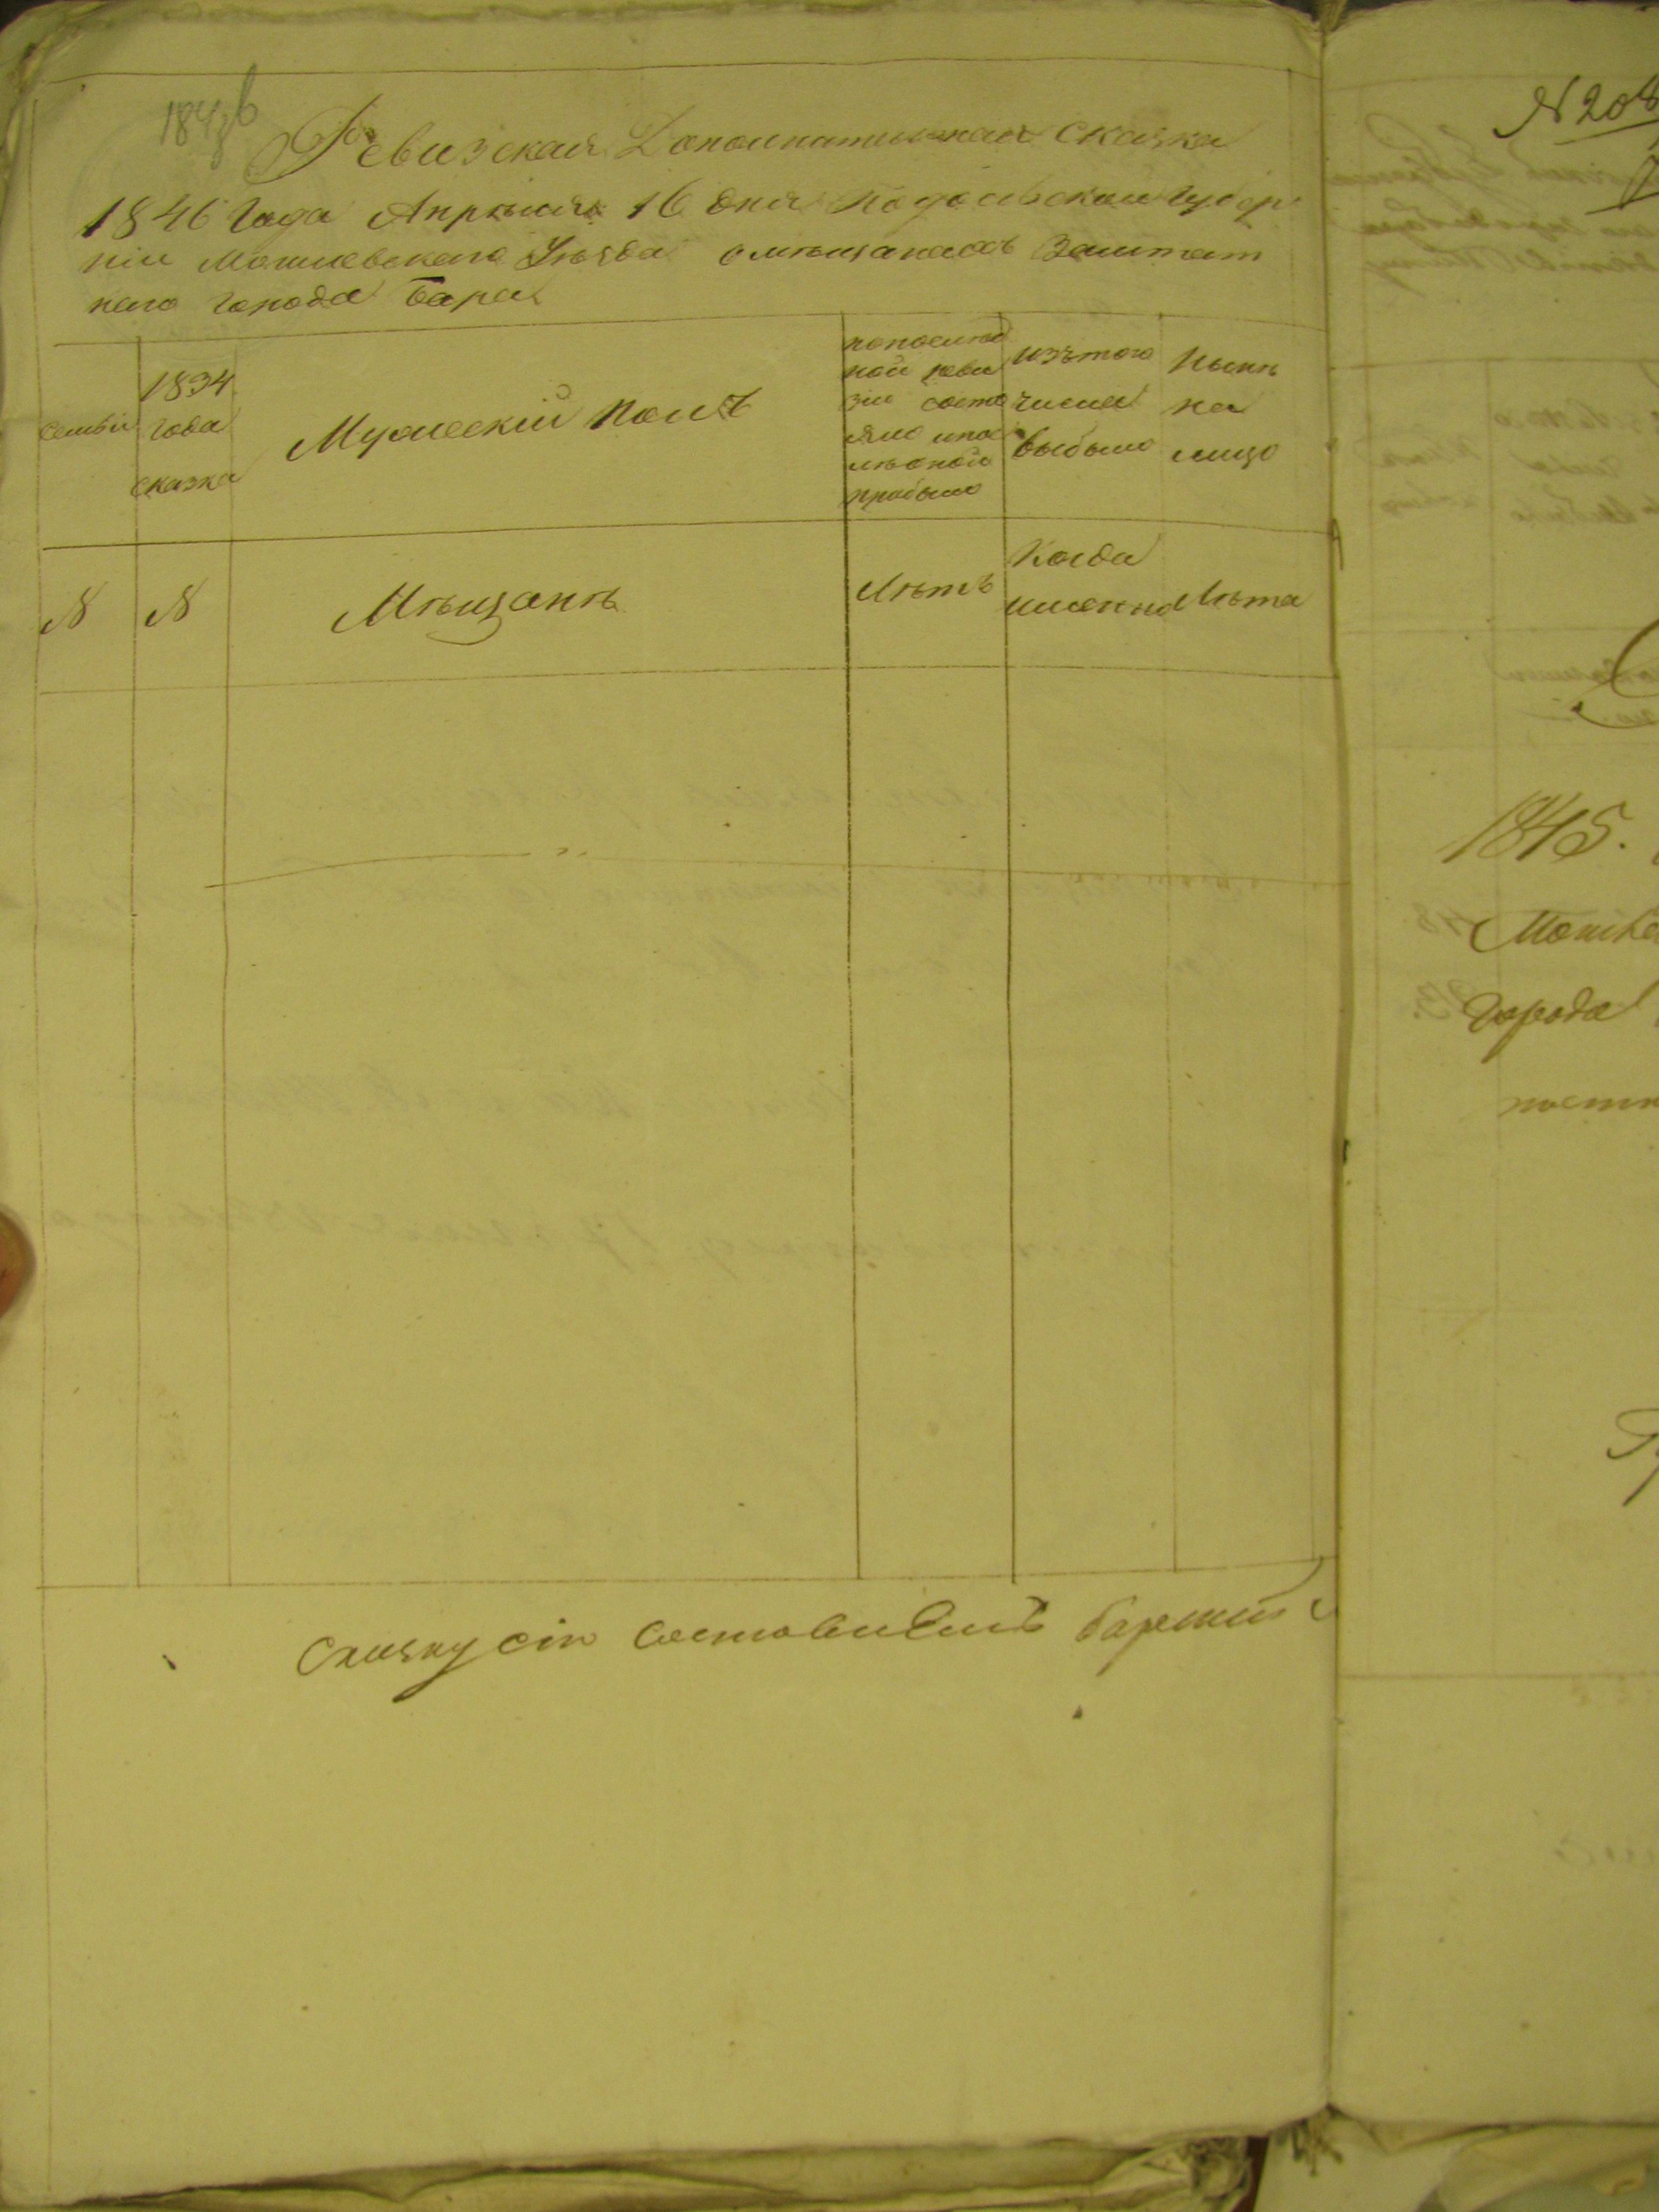 Ревизская Дополнительная Сказка
1846 Года Апреля 16 дня Подольской Губер
ніи Могилевскаго Уезда о мещанахъ Заштат
наго города Бара
Семьи
1834
года
сказка
Мужескій полъ
по послед
ней реви
зіи состо
яло и по
прибыло
изътого
числа
выбыло
Ныне
на
лицо
N
N
Мещане
Летъ
Когда
именно
Лета
Сказку сію Составилъ
N 208
1845.
Города